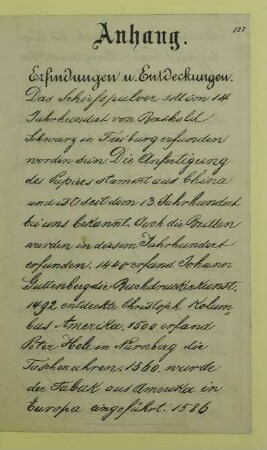 127
Anhang.
Erfindungen u. Entdeckungen.
Das Schießpulver soll im 14
Jahrhundert von Berthold
Schwarz in Freiburg erfunden
worden sein Die Anfertigung
des Papieres stammt aus China
und ist seit dem 13. Jahrhundert
bei uns bekannt. Auch die Brillen
wurden in diesem Jahrhundert
erfunden. 1440 erfand Johann
Guttenberg die Buchdruckerkunst.
1492 entdeckte Christoph Kolum-
bus Amerika. 1500 erfand
Peter Hele in Nürnberg die
Taschenuhren. 1560 wurde
der Tabak aus Amerika in
Europa eingeführt. 1586